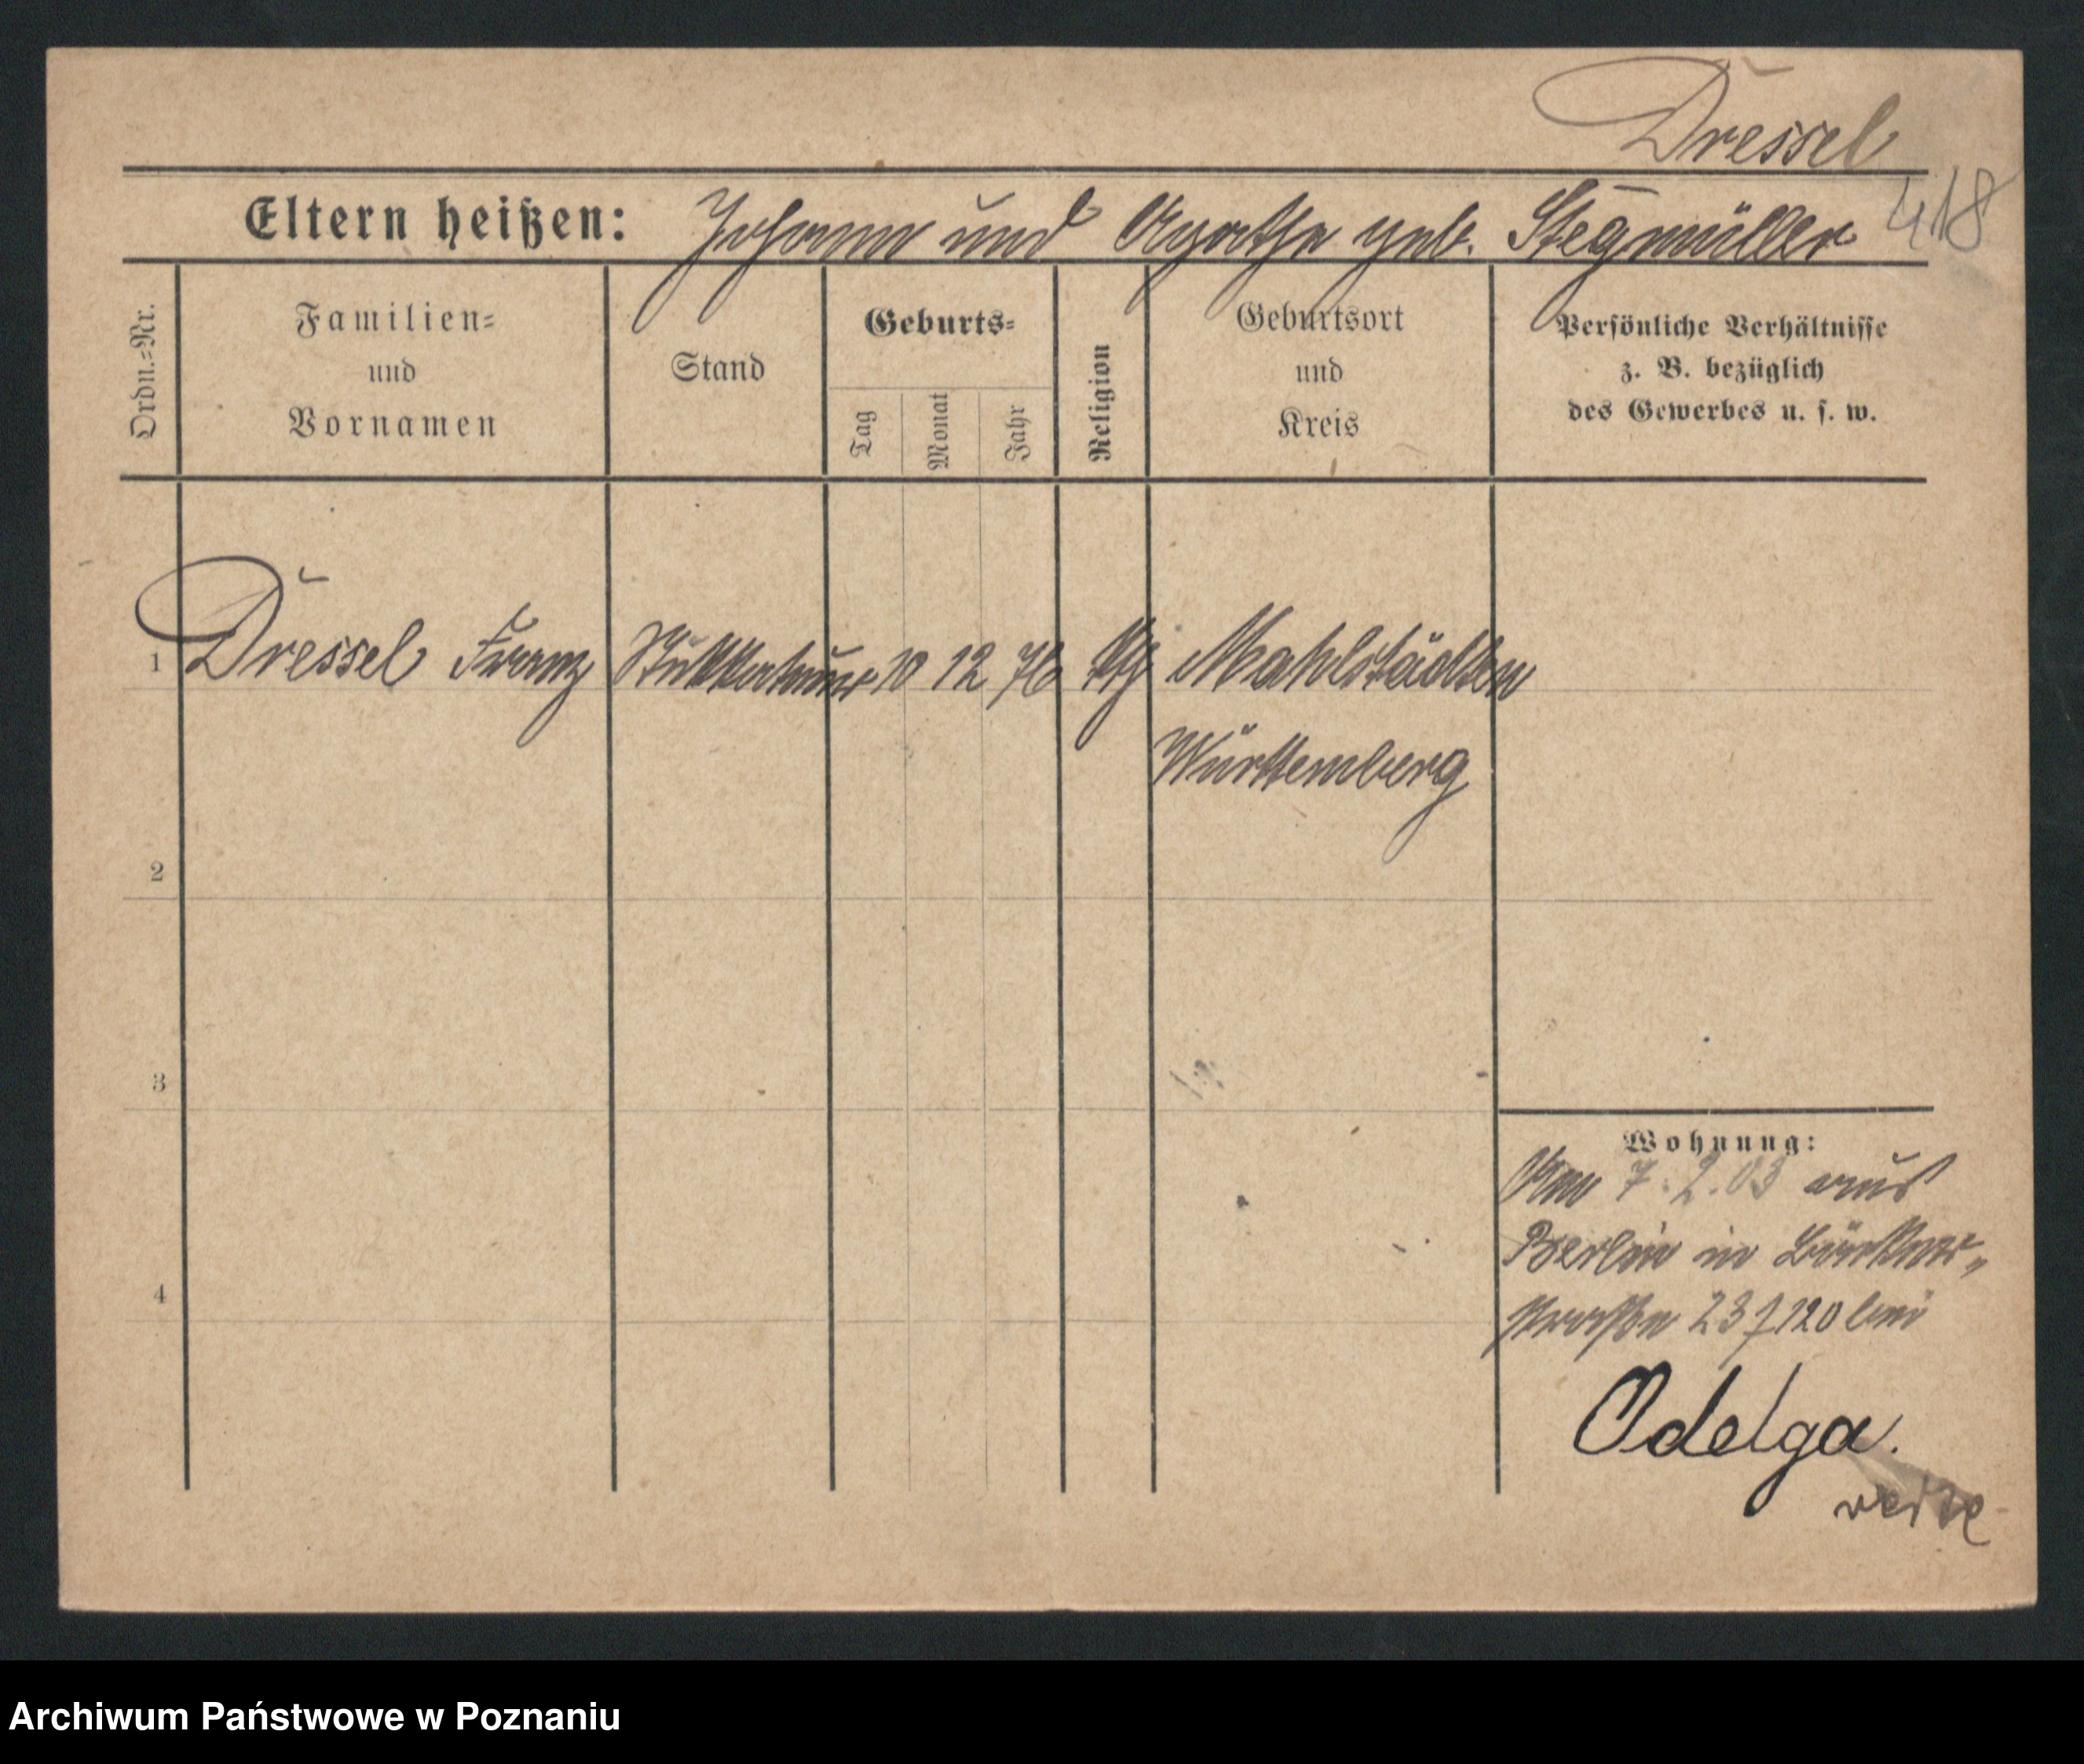 Dressel
418
Eltern heißen: Johann und Agathe geb. Stegmüller
Ordn.-Nr.
Familien-
und
Vornamen
Stand
Geburts-
Tag
Monat
Jahr
Religion
Geburtsort
und
Kreis
Persönliche Verhältnisse
z. B. bezüglich
des Gewerbes u. s. w.
1 Dressel Franz Stukkateur 10 12 76 Mahlstädten
Württemberg
2
3
4
Wohnung:
Am 7.2.03 aus
Berlin in
straße 23 120 bei
Odelga.
Archiwum Państwowe w Poznaniu